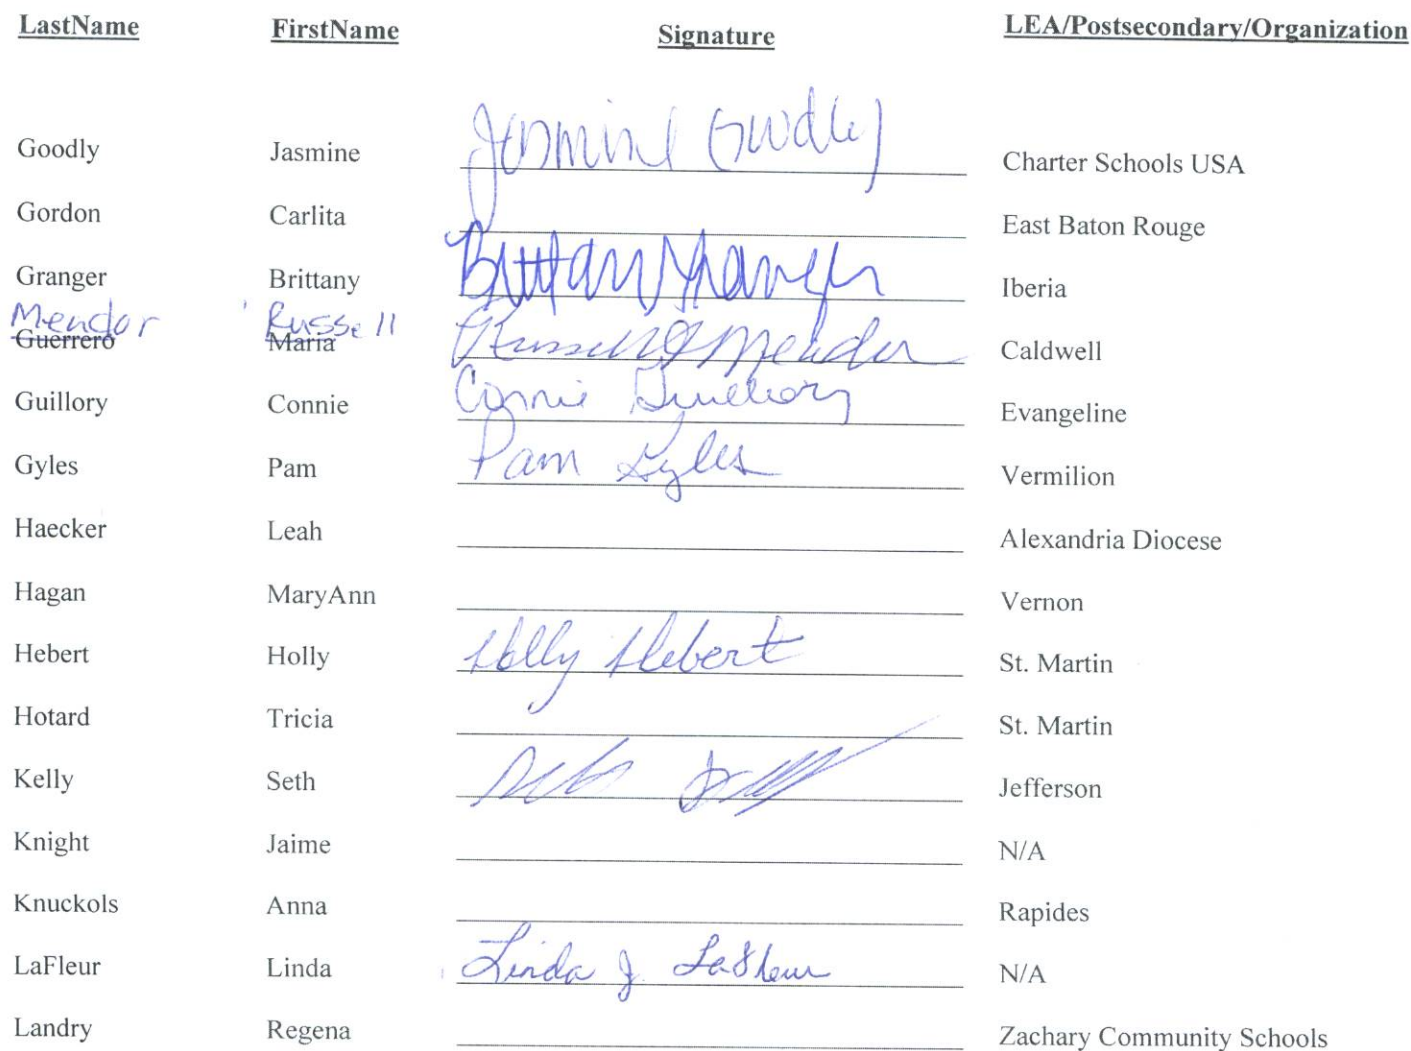 LastName FirstName Signature LEA/Postsecondary/Organization
Goodly Jasmine Jasmine Goodley Charter Schools USA
Gordon Carlita East Baton Rouge
Granger Brittany Brittany Granger Iberia
Mendor Russell
Guerrero Maria Russell Meador Caldwell
Guillory Connie Connie Guillory Evangeline
Gyles Pam Pam Gyles Vermilion
Haecker Leah Alexandria Diocese
Hagan MaryAnn Vernon
Hebert Holly Holly Hebert St. Martin
Hotard Tricia St. Martin
Kelly Seth Jefferson
Knight Jaime N/A
Knuckols Anna Rapides
LaFleur Linda Linda J. LaFleur N/A
Landry Regena Zachary Community Schools